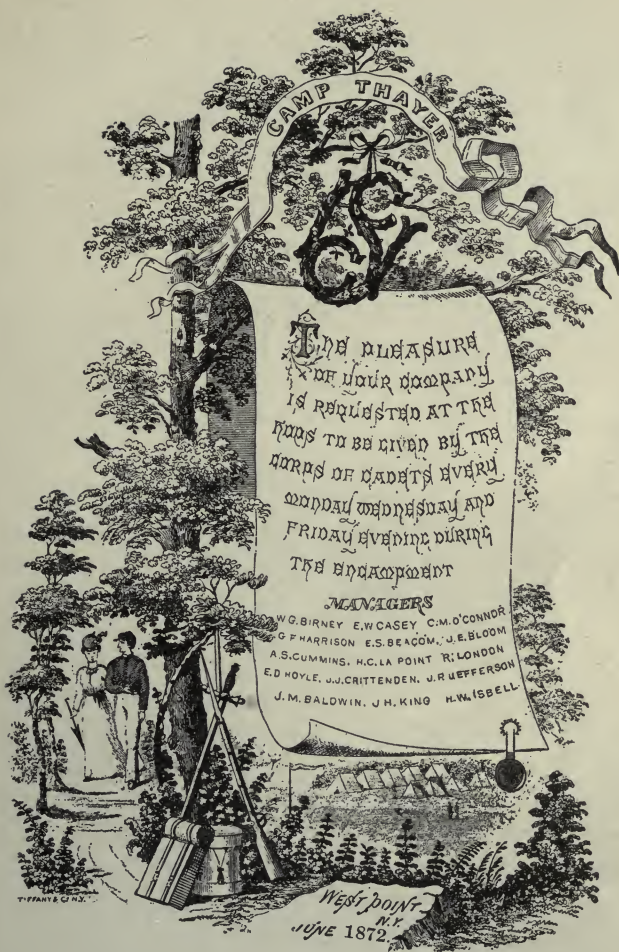 CAMP THAYER
THE PLEASURE
OF YOUR COMPANY
IS REQUESTED AT THE
HOPS TO BE GIVEN BY THE
CORPS OF CADETS EVERY
MONDAY WEDNESDAY AND
FRIDAY EVENING DURING
THE ENCAMPMENT
MANAGERS
W.G. BIRNEY E.W. CASEY C.M. O'CONNOR
G F HARRISON E.S. BEACOM. J.E. BLOOM
A.S. CUMMINS. H.C. LA POINT R. LONDON
E.D HOYLE. J.J. CRITTENDEN. J.R JEFFERSON
J.M. BALDWIN. J H. KING H.W. ISBELL
TIFFANY & CO N.Y.
WEST POINT
N.Y.
JUNE 1872